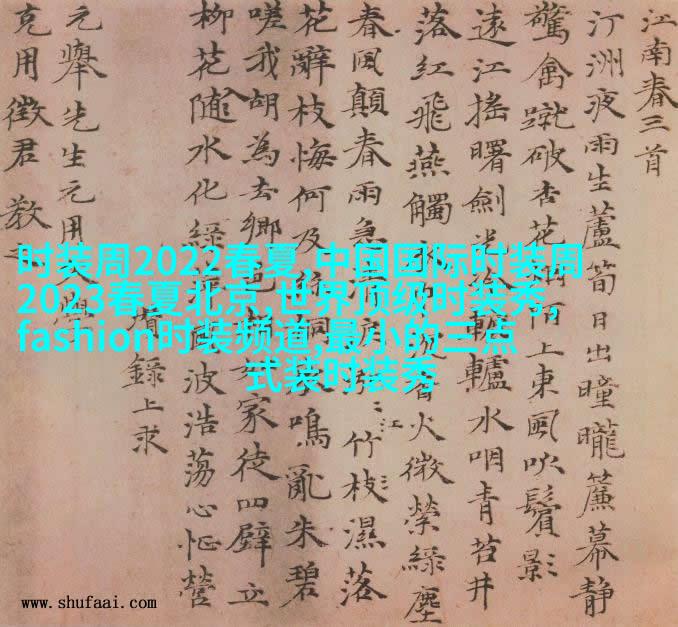 江南春三首
汀洲夜雨生蘆筍日出曈曨簾幕靜
驚禽蹴破杏花陌上東風吹鬢影
遠江搖曙劍轆轤水咽青苔井
落紅飛燕觸火微縈綠塵
春風顛春雨急竹枝濕落
江
花辭枝悔何及桐鳴亂朱碧
嗟我胡為去鄉邑家徒四壁立
柳花隨水化綠波浩蕩心怔營
瓚錄上求
元舉先生元用
克用徵君教
时装周2022春夏,中国国际时装周
2023春夏北京,世界顶级时装秀,
fashion时装频道,最小的三点
式装时装秀
www.shufaai.com